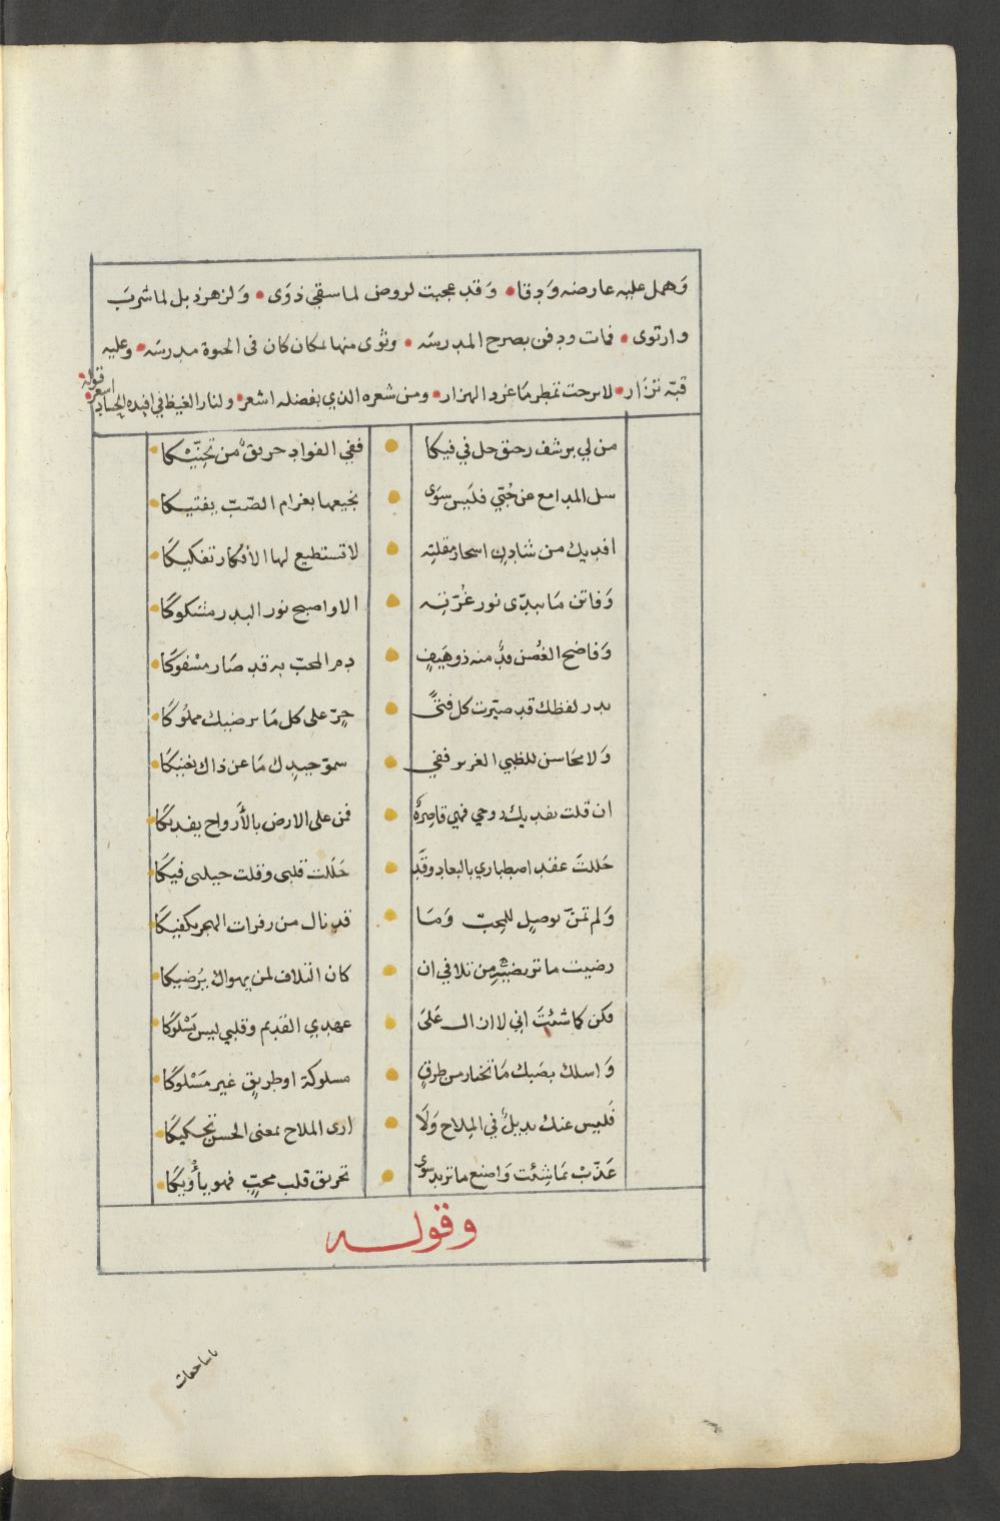 وَهمل عليه عارضه وَدقا • وَقد عجبت لروض لما سقي ذوَى • وَلزهر ذبل لما شربَ
وارتوى • فمات ودفن بصرح المدرسَه • وثوى منها بمكان كان في الحيوة مدرسَه • وعليه
قبّة تزَار • لابرحت تمطر مَا غرد الهزار • ومن شعره الذي بفضله اشعر • ولنار الغيظ في افيدة الحساد اسعر • قوله
من لي برشف رحيق حل في فيكا • ففي الفواد حريق من تجنّيكا
سل المدامع عن حُبّي فليس سوَى • نجيعها بغرام الصّبّ يفتيكا
افديك من شادن اسحار مقلته • لا تستطيع لها الافكار تفكيكَا
وَفاتن مَا تبدّى نور غرّته • الا واصبح نور البدر مشكوكَا
وَفاضح الغُصن قدٌّ منه ذو هَيفٍ • دم المحبّ به قد صَار مسْفوكَا
بدر لفظك قد صيّرت كل فتىً • حرّ على كل مَا يرضيك مملُوكَا
وَلا محَاسن للظبي الغرير ففي • سموّ جيدك مَا عن ذاك يغنيكَا
ان قلت نفديك روحي فهي قاصِرةٌ • فمن على الارض بالأَرواح يفديكَا
حَللتَ عقد اصطباري بالبعاد وقَد • حَلَلت قلبي وقلت حيلتي فيكَا
وَلم تمنّ بوصلٍ للمحبّ وَمَا • قد نال من زفرات الهجر يكفيكَا
رضيت ما ترتضيه من تلافي ان • كان التلاف لمن يهواك يُرضيكا
فكن كما شئتَ اني لا ازال عَلىَ • عهدي القديم وقلبي ليس يَسْلوكَا
وَاسلك بصَبك مَا تختار من طرقٍ • مسلوكة او طريقٍ غير مَسْلوكَا
فَليس عنك بديلٌ في المِلاح وَلَا • ارى الملاح بمعنى الحسن تحكيكَا
عَذّبْ بمَا شِئت وَاصنع ما تريد سوى • تحريق قلب محبٍّ فهو يأويكَا
وقوله